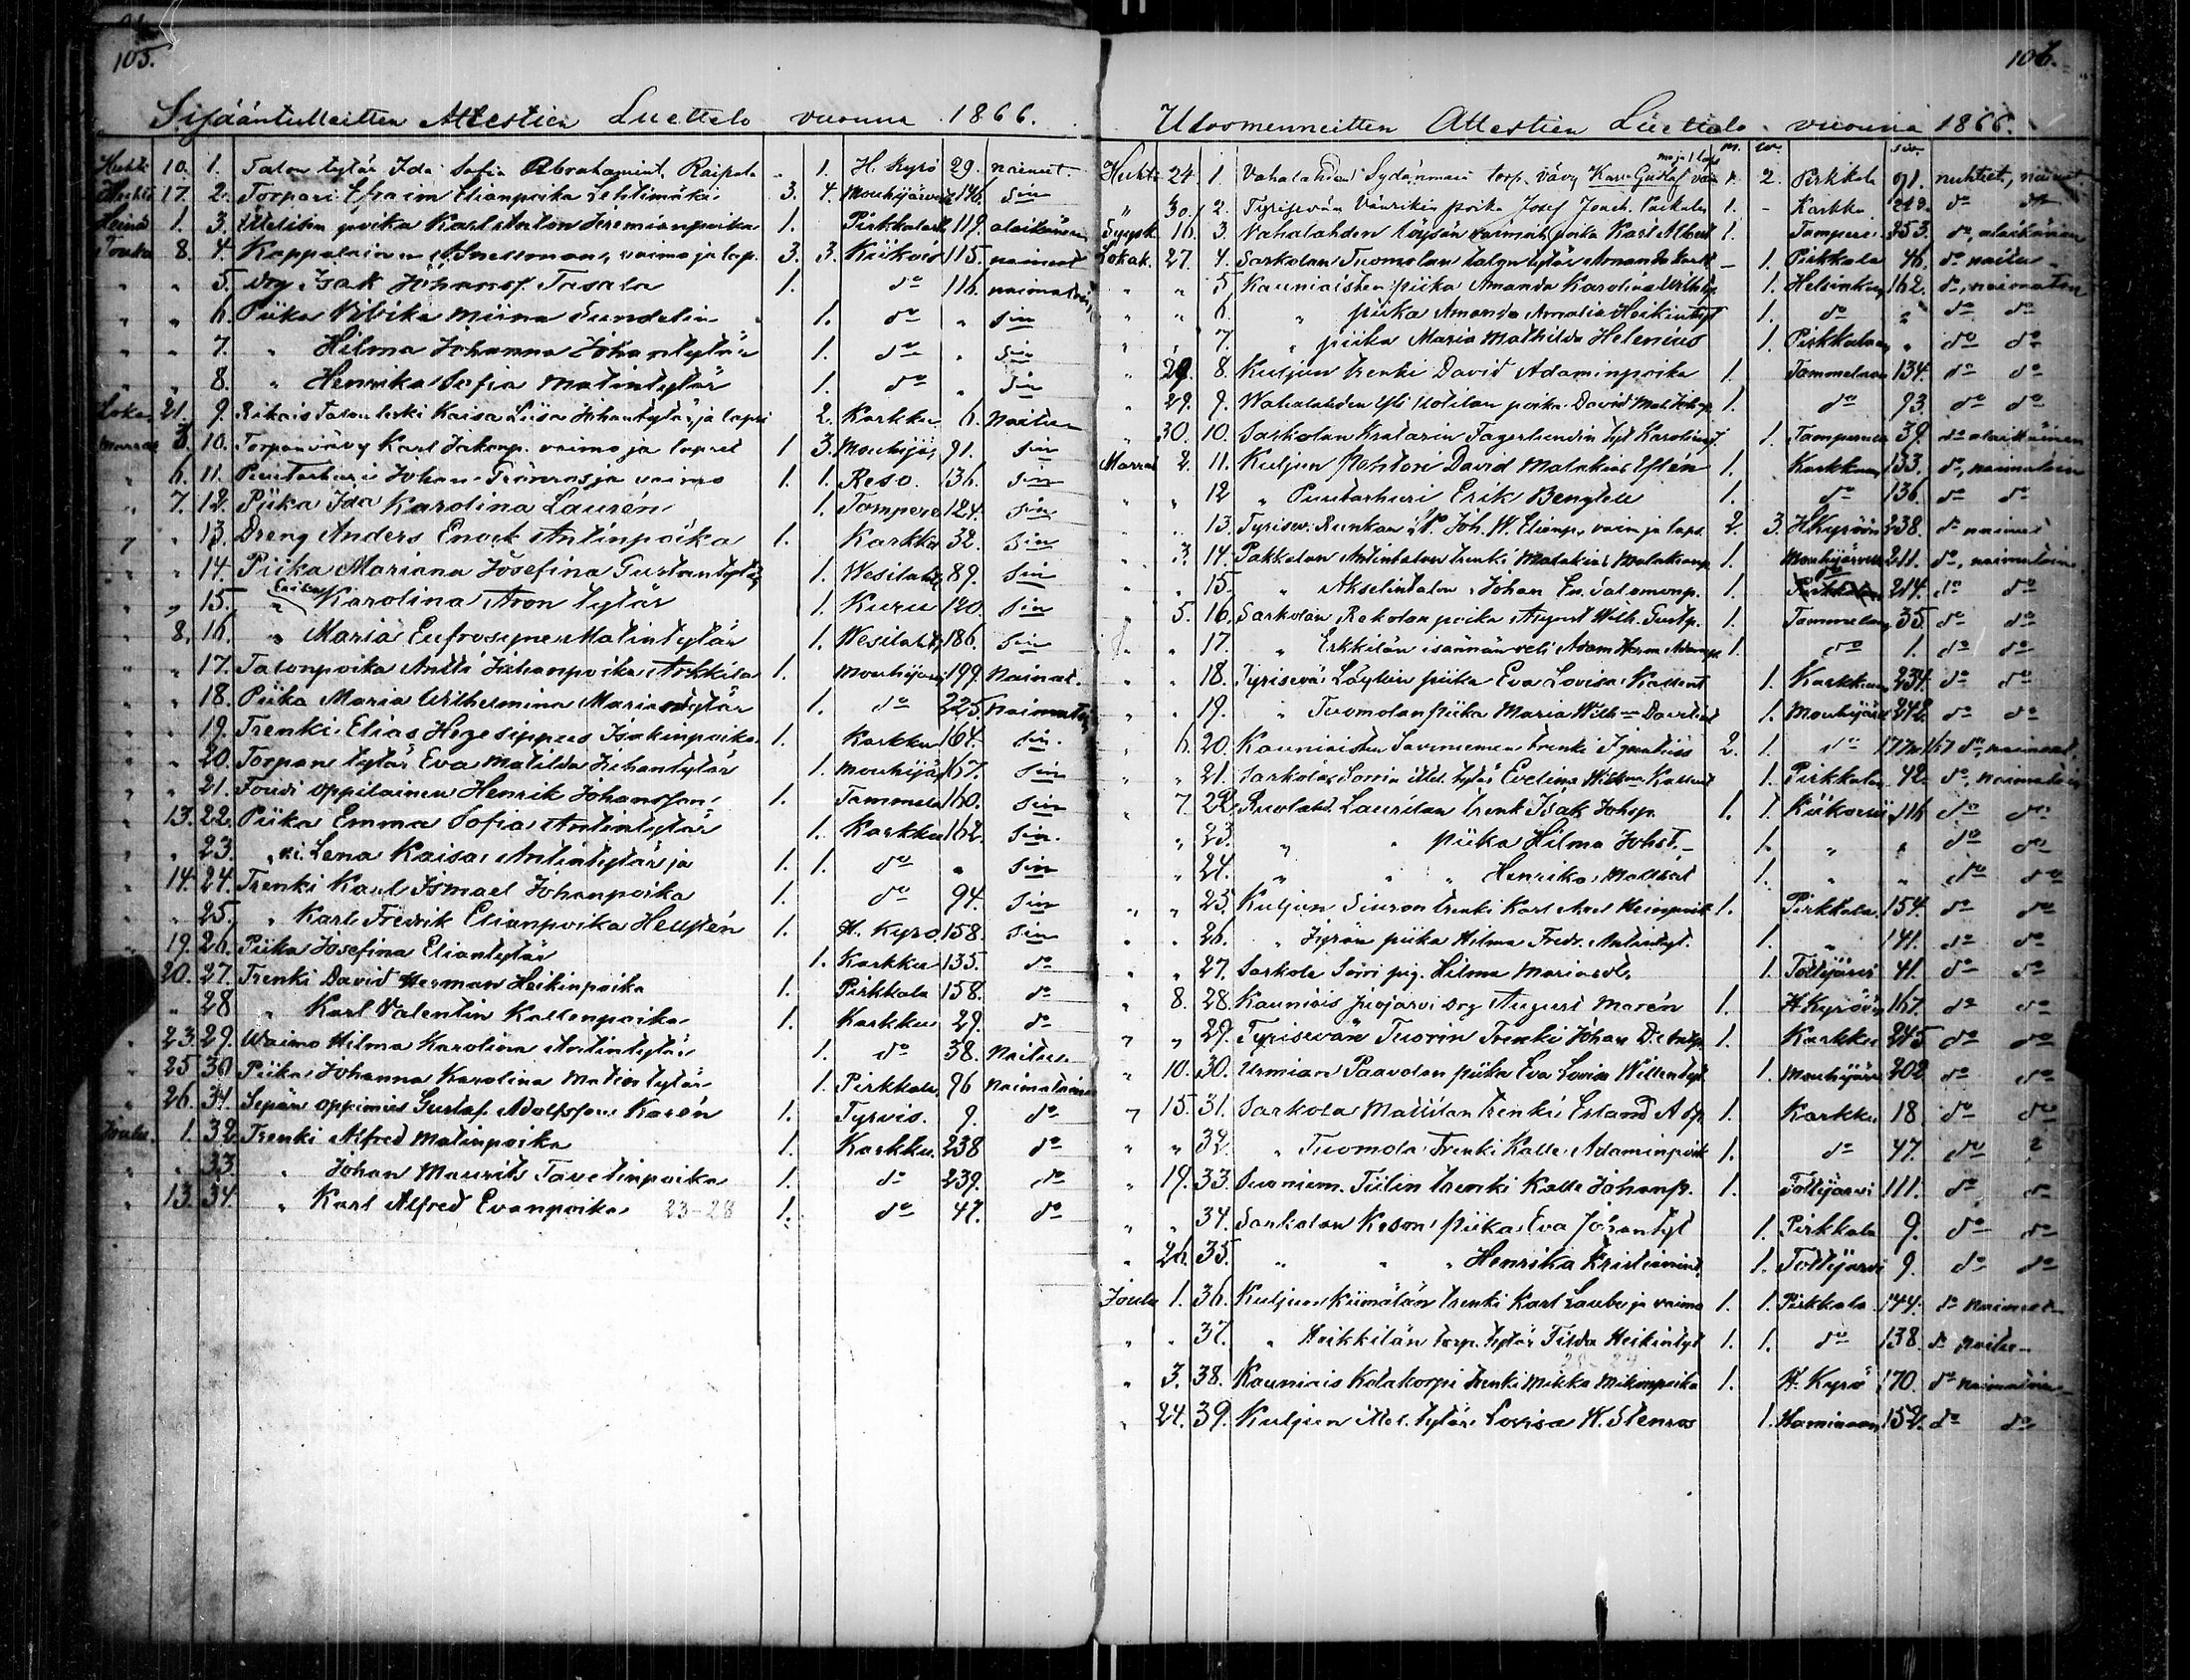 105.
Sisääntulleitten Attestien Luettelo vuonna 1866.
Huhti 10. 1. Talon tytär Ida Sofia Abrahamint. Raipala 1. H. Kyrö 29. nainut.
Huhti 17. 2. Torpari Efraim Elianpoika Lehtimäki 3. 4. Mouhijärvi 146. Sin
Heinä 1. 3. Itsellisen poika Karl Anton Jeremianpoika 1. Pirkkala 119. alaikäinen
Touko 8. 4. Kappalainen A. Snellman, vaimo ja lap. 3. 3. Kiikois 115. nainut
" " 5. drg Isak Johansf. Tasala 1. do 116. naimatoin
" " 6. Piika Vibika Miina Sundelin 1. do " Sin
" " 7. " Hilma Johanna Johantytär 1. do " Sin
" " 8. " Henrika Sofia Matintytär 1. do " Sin
Loka 21. 9. Talon leski Kaisa Liisa Johantytär ja lapsi 2. Karkku 6. Naitu
Marras 3. 10. Torpan vävy Karl Jakonp. vaimo ja lapset 1 3. Mouhijä. 91. Sin
" 6. 11. Puutarhuri Johan vaimo 1. 1. Reso. 136. Sin
" 7. 12. Piika Ida Karolina Laurén 1. Tampere 124. Sin
" " 13. Dreng Anders Enock Antinpoika 1. Karkku 32. Sin
" " 14. Piika Mariana Josefina Gustantytär 1. Wesilahti 89. Sin
" " 15. " Erika Karolina Aron tytär 1. Kuru 120. Sin
" 8. 16. " Maria Eufrosyne Matintytär 1. Wesilahti 186. Sin
" " 17. Talonpoika Antti Juhanpoika Arkkila 1. Mouhijärvi 199. Nainut.
" " 18. Piika Maria Wilhelmina Mariantytär 1. do 225. Naimatoin
" " 19. Trenki Elias Hegesippus Isakinpoika 1. Karkku 164. Sin.
" " 20. Torpan tytär Eva Matilda Juhantytär 1. Mouhijär 167. Sin
" " 21. Foudi oppilainen Henrik Johansson 1. Tammela 160. Sin
" 13. 22. Piika Emma Sofia Antintytär 1. Karkku 162. Sin.
" " 23. " Lena Kaisa Antintytär ja 1. 1. do " Sin
" 14. 24. Trenki Karl Ismael Johanpoika 1. do 94. Sin
" " 25. " Karl Fredrik Elianpoika Hellstén 1. H. Kyrö. 158. Sin
" 19. 26. Piika Josefina Eliantytär 1. Karkku 135. do
20. 27. Trenki David Herman Heikinpoika 1. Pirkkala 158. do
" 28 " Karl Valentin Kallenpoika 1. Karkku 29. do
" 23. 29. Waimo Hilma Karolina Antintytär 1. do 38. Naitu
" 25 30 Piika Johanna Karolina Matintytär 1. Pirkkala 96 Naimatoin
" 26. 31. Sepän oppimies Gustaf Adolfsson Karén 1. Tyrvis. 9. do
Joulu. 1. 32. Trenki Alfred Matinpoika 1. Karkku. 238 do
" " 33 " Johan Maurits Tavetinpoika 1. do 239. do
" 13. 34. " Karl Alfred Evanpoika 23-28 1. do 47. do
106.
Ulosmenneitten Attestien Luettelo vuonna 1866.
m. w. siv.
Huhti 24. 1. Vahalahden Sydänmaa torp. vävy Karl Gustaf vaimo ja 1 laps 1. 2. Pirkkala 91. nuhteet., nainut
" 30. 2. Tyrisevän Vänrikin poika Josef Joach. 1. - Karkku 243. do do
Syysk. 16. 3. Vahalahden poika Karl Albert 1. Tampere. 253. do, alaikäinen
Lokak. 27. 4. Sarkolan Tuomolan talon tytär Amanda - 1. Pirkkala 46. do naitu
" " 5 Kauniaisten piika Amanda Karolina 1. Helsinkiin 162. do, naimaton
" " 6. " piika Amanda Amalia Heikintyt 1. do " do do
" " 7. " piika Maria Mathilda Helenius 1. Pirkkalaan " do do
" 28. 8. Kuljun trenki David Adaminpoika 1. Tammelaan 134. do do
" 29. 9. Wahalahden Yli Kotilan poika David 1. do 93. do do
" 30. 10. Sarkolan Kratarin Fagerlundin tyt Karolina 1. Tampereen 39. do alaikäinen
Marras 2. 11. Kuljun Pehtori David Malakias Ylstén 1. Karkkuun 133. do, naimatoin
" " 12 " Puutarhuri Erik Bengtell 1. do 136. do do
" " 13. Tyrisev. Runkan Joh. W. Elianp., vaim. ja laps. 2 3. HKyröön 238. do nainut
" 3. 14. Pakkalan Anttintalon trenki Malakias Malakianp 1. Mouhijärvi 211. do, naimatoin
" " 15. " Akselintalon Johan En. Salomonp. 1. 214. do do
" 5. 16. Sarkolan Rekolan poika August Wilh. Gustp. 1. Tammelaan 35. do do
" " 17. " Erkkilän isännän veli Adam Herm. Adamp. 1. do 1. do do
" " 18. Tyrisevä Löytyn piika Eva Lovisa Kallent 1. Karkkuun 234. do do
" " 19. " Tuomolan piika Maria Wilh. Davidint 1. Mouhijärvi 242. do do
" 6. 20. Kauniaisten Saveniemen trenki Ignatius 2. 1. do 177 m 167 do, nainut.
" " 21. Sarkola Sorrin itsel. tytär Evelina Wilhna Kallent 1. Pirkkala 42 do, naimatoin
" 7. 22. Ruolaht. Laurilan trenk. Isak Johsp. 1. 1. Kiikoisiin 116 do do
" 23. " " piika Hilma Johst. 1. " " do do
" 24. " " " Henrika Mattsdt 1. " " do do
" " 25. Kuljun Siuron trenki Karl Axel Heinpoik 1. Pirkkala. 154. do do
" " 26. " Jyrän piika Hilma Fredr. Antintyt. 1. " 141. do do
" " 27. Sarkola Soini pig. Hilma Mariasdtr 1. Tottijärvi 41. do do
" 8. 28. Kauniais drg August Morén 1. H.Kyröön 167. do do
" " 29. Tyrisevän Tuorin Trenki Johan D. 1. Karkku 245 do do
" 10. 30. Urmian Paavolan piika Eva Lovisa Willentyt 1. Mouhijärvi 202 do do
" 15. 31. Sarkola Mattilan trenki Erland A 1. Karkku 18. do do
" " 32. " Tuomola Trenki Kalle Adaminpoik 1. do 47. do ?
" 19. 33. Suoniem. Tiilin trenki Kalle Johanp. 1. Tottijärvi 111. do do
" " 34. Sarkolan piika Eva Johantyt 1. Pirkkala 9. do do
" 26. 35. " " " Henrika Kristianint. 1. Tottijärvi 9. do do
Joulu 1. 36. Kuljun Kiimälän trenki Karl Lauber ja vaimo 1. 1. Pirkkala 144. do nainut
" " 37. " Heikkilän torp. tytär Tilda Heikintyt 1. 1. do 138. do naitu
" 3. 38. Kauniais Kalakorpi trenki Mikko Mikonpoika 1. H. Kyrö 170. do naimatoin
" 24. 39. Kuljun itsel. tytär Lovisa W. Stenros 1. Haminaan 152. do do